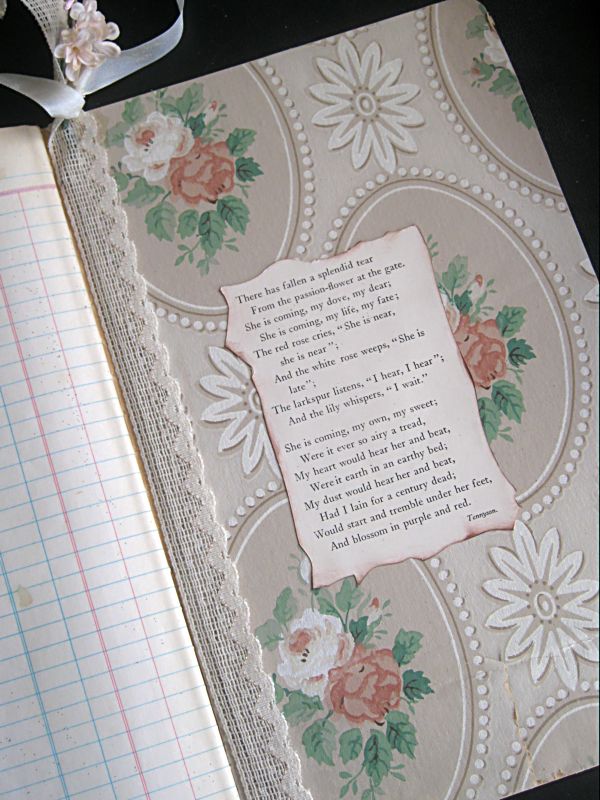 There has fallen a splendid tear
From the passion-flower at the gate.
She is coming, my dove, my dear;
She is coming, my life, my fate;
The red rose cries, “She is near,
she is near”;
And the white rose weeps, “She is
late”;
The larkspur listens, “I hear, I hear”;
And the lily whispers, “I wait.”
She is coming, my own, my sweet;
Were it ever so airy a tread,
My heart would hear her and beat,
Were it earth in an earthy bed;
My dust would hear her and beat,
Had I lain for a century dead;
Would start and tremble under her feet,
And blossom in purple and red.
Tennyson.